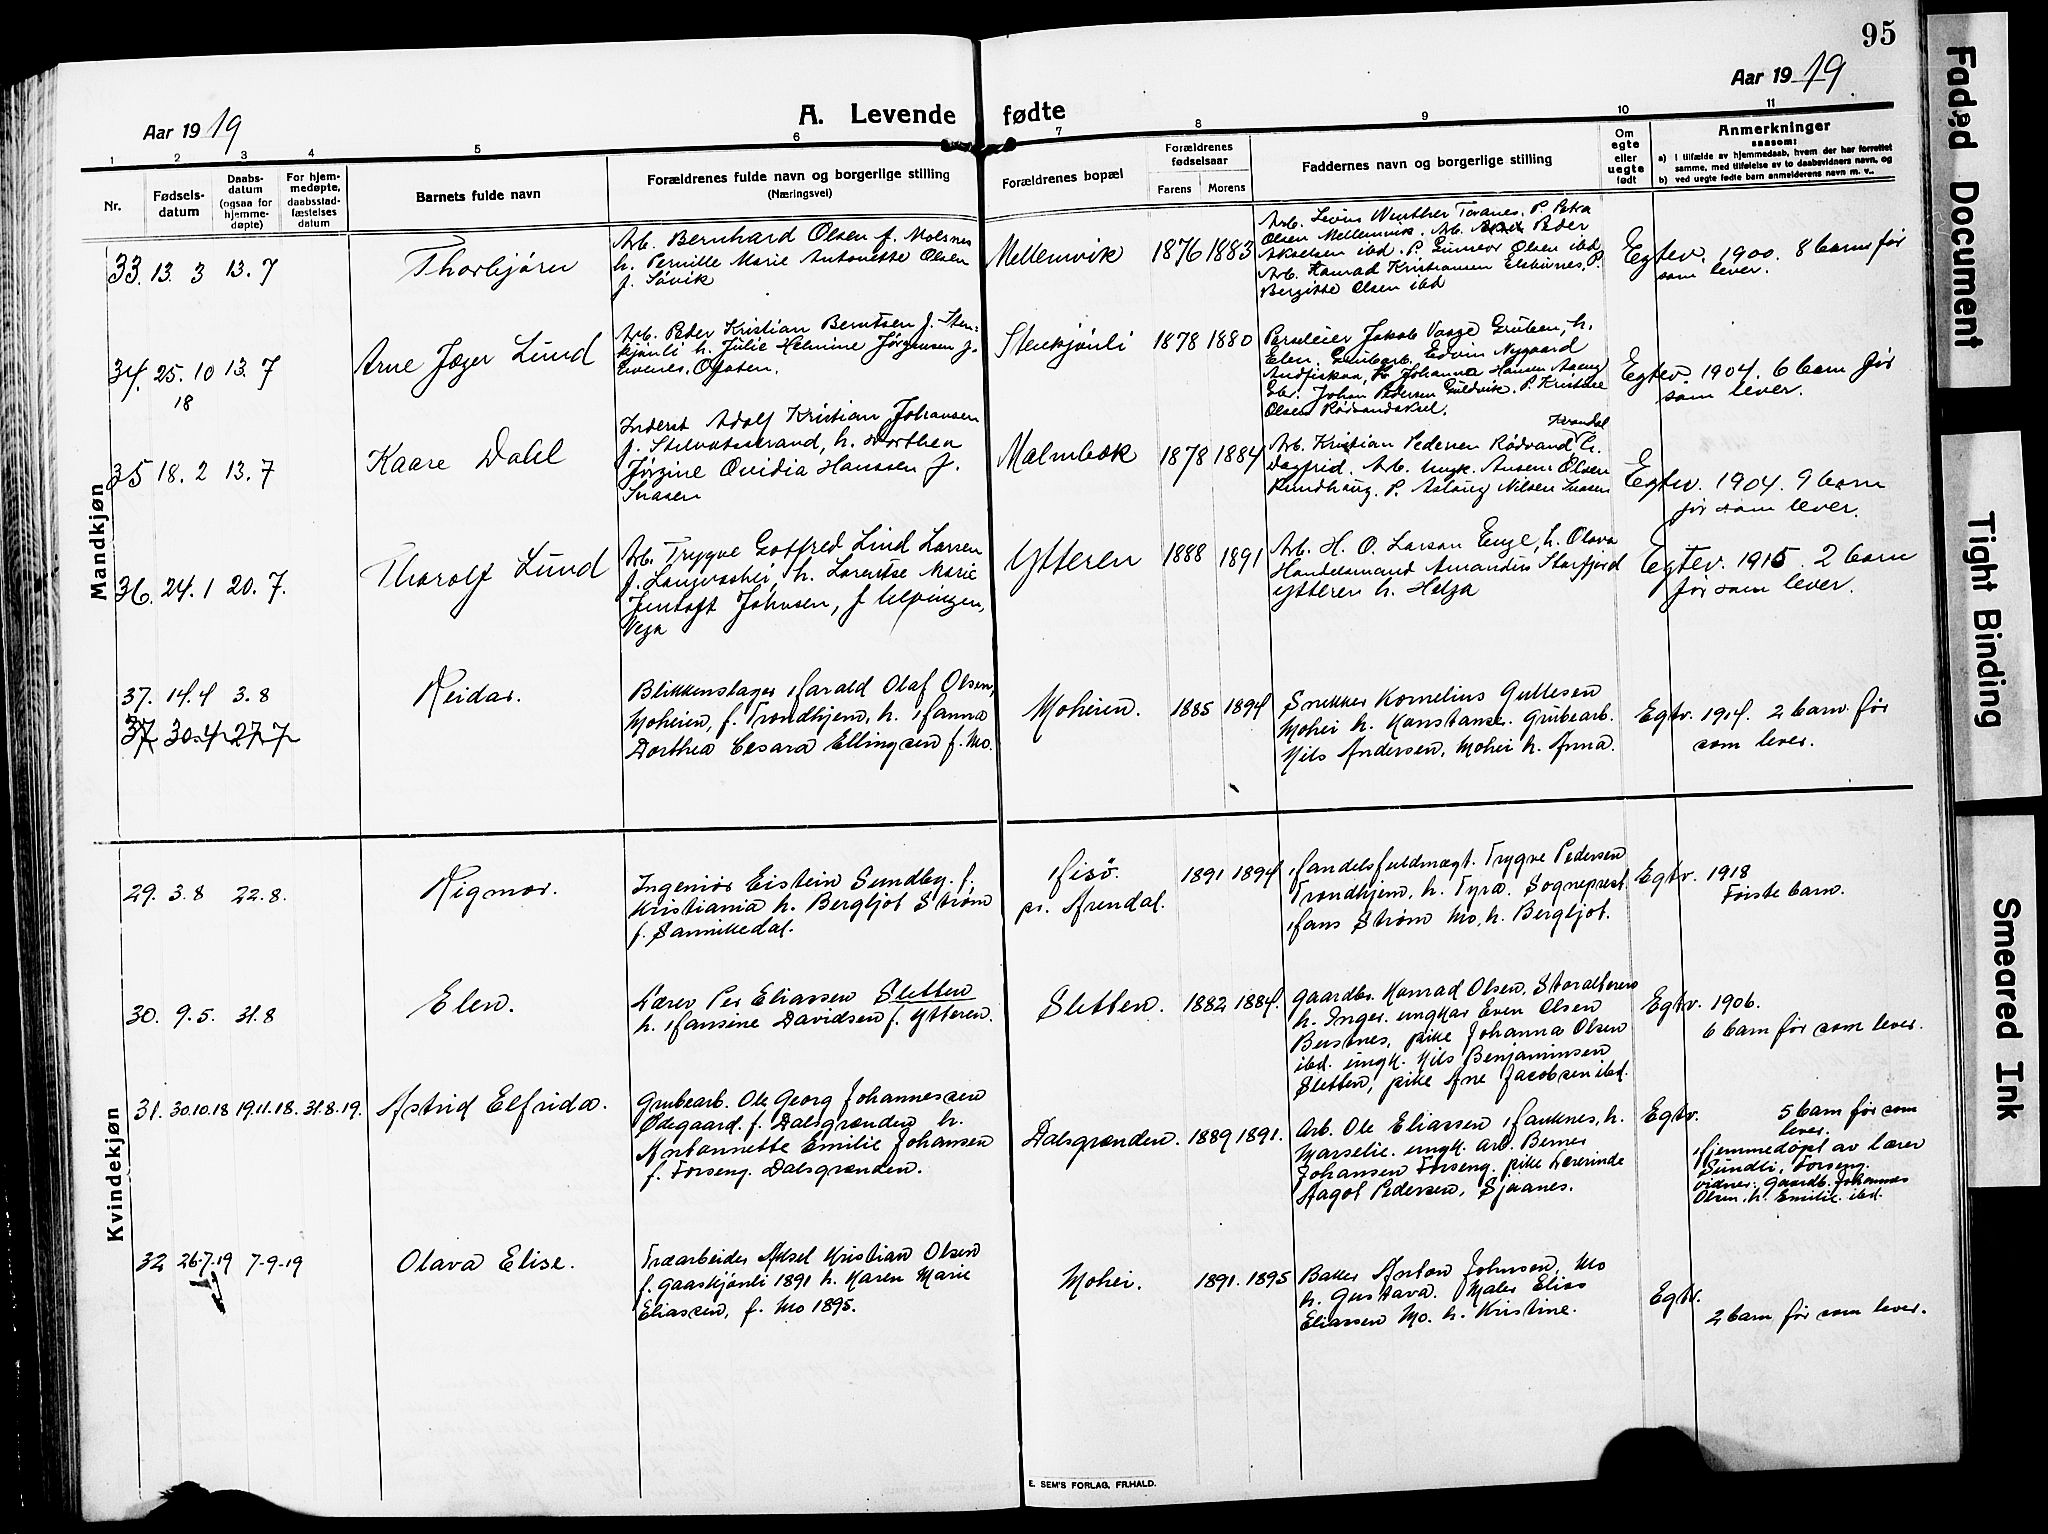 95
Aar 1919
Aar 1919
A. Levende fødte
1 2 3 4 5 6 7 8 9 10 11
Nr.
Fødsels-
datum
Daabs-
datum
(ogsaa for
hjemme-
døpte)
For hjem-
medøpte,
daabsstad-
fæstelses
datum
Barnets fulde navn
Forældrenes fulde navn og borgerlige stilling
(Næringsvei)
Forældrenes bopæl
Forældrenes
fødselsaar
Farens Morens
Faddernes navn og borgerlige stilling
Om
egte
eller
uegte
født
Anmerkninger
saasom:
a) i tilfælde av hjemmedaab, hvem der har forrettet
samme, med tilføielse av to daabsvidners navn, og
b) ved uegte fødte barn anmelderens navn m. v..
Mandkjøn
33. 13. 3 13. 7
Thorbjørn
Arb. Bernhard Olsen f. Molsnes
h. Pernille Marie Antonette Olsen
f. Søvik
Mellemvik 1876 1883
Arb. Levin Winther Toranes. P. Petra
Olsen Mellemvik. Arb. Peder
Akselsen ibd. P. Gunvor Olsen ibd
Arb. Konrad Kristiansen P.
Bergitte Olsen ibd
Egtev. 1900. 8 barn før
som lever.
34. 25. 10 13. 7
18
Arne Jæger Lund
Arb. Peder Kristian Berntsen f. Sten-
kjønli h. Julie Helmine Jørgensen f.
Evenes, Ofoten.
Stenkjønli 1878 1880
Jakob Vaage Gruben, h.
Elen. Grubearb. Edvin Nygaard
Andfiskaa, h. Johanna Hansen
Johan Pedersen Guldvik. P. Kristine
Olsen Rødsandaksel.
Egtev. 1904. 6 barn før
som lever.
35 18. 2 13. 7
Kaare Dahl
Inderst Adolf Kristian Johansen
f. Stilvatsstrand, h. Dorthea
Jørgine Ovidia Hanssen f.
Snasen
Malmbæk 1878 1884
Arb. Kristian Pedersen Rødsand, h.
Dagfrid. Arb. ungk. Olsen
Rundhaug. P. Aslaug Nilsen Snasen
Egtev. 1904. 9 barn
før som lever.
36. 24. 1 20. 7.
Thorolf Lund
Arb. Trygve Gotfred Lind Larsen
f. Langvashei, h. Lorentse Marie
Jentoft Johnsen, f Ulvingen,
Vega
Ytteren 1888 1891
Arb. H. O. Larsen Enge, h. Olava
Handelsmand Amandus Storfjord
Ytteren h. Helga
Egtev. 1915. 2 barn
før som lever.
37. 14. 4 3. 8
37 30.4 27.7
Reidar.
Blikkenslager Harald Olaf Olsen,
Moheien, f. Trondhjem, h. Hanna
Dorthea Cesara Ellingsen f. Mo.
Moheien. 1885 1894
Snekker Kornelius Gullesen
Mohei h. Konstanse. Grubearb.
Nils Andersen, Mohei h. Anna.
Egtv. 1914. 2 barn før
som lever.
Kvindekjøn
29. 3. 8 22. 8.
Rigmor.
Ingeniør Eistein Sundby. f.
Kristiania h. Bergljot Strøm
f. Sannikedal.
Hisö.
pr. Arendal.
1891 1894
Handelsfuldmægt. Trygve Pedersen
Trondhjem, h. Tyra. Sogneprest
Hans Strøm Mo, h. Bergljot.
Egtv. 1918
Første barn.
30. 9. 5. 31. 8
Elen.
Lærer Per Eliassen Sletten
h. Hansine Davidsen f. Ytteren.
Sletten. 1882 1884.
Gaardbr. Konrad Olsen. Storalteren
h. Inger. ungkar Even Olsen
Bustnes, pike Johanna Olsen
ibd. ungk. Nils Benjaminsen
Sletten, pike Ane Jacobsen ibd.
Egtv. 1906.
6 barn før som lever.
31. 30.10.18 19.11.18. 31.8.19.
Astrid Elfrida.
Grubearb. Ole Georg Johannessen
Ødegaard. f. Dalsgrænden h.
Antonnette Emilie Johansen
f. Forseng. Dalsgrænden.
Dalsgrænden. 1889 1891.
Arb. Ole Eliassen Hauknes, h.
Marselie. ungk. arb. Bernes
Johansen Forseng. pike Lærerinde
Aagot Pedersen, Sjaanes.
Egtv. 5 barn før som
lever.
Hjemmedøpt av lærer
Sundli, Forseng.
vidner: Gaardb. Johannes
Olsen h. Emilie. ibd.
32 26.7.19 7-9-19
Olava Elise.
Træarbeider Aksel Kristian Olsen
f. Gaaskjønli 1891 h. Karen Marie
Eliassen, f. Mo 1895.
Mohei. 1891. 1895
Baker Anton Johnsen, Mo
h. Gustava. Maler Elias
Eliassen Mo. h. Kristine.
Egtv.
2 barn før som lever.
E. SEM'S FORLAG, FR.HALD.
Faded Document
Tight Binding
Smeared Ink